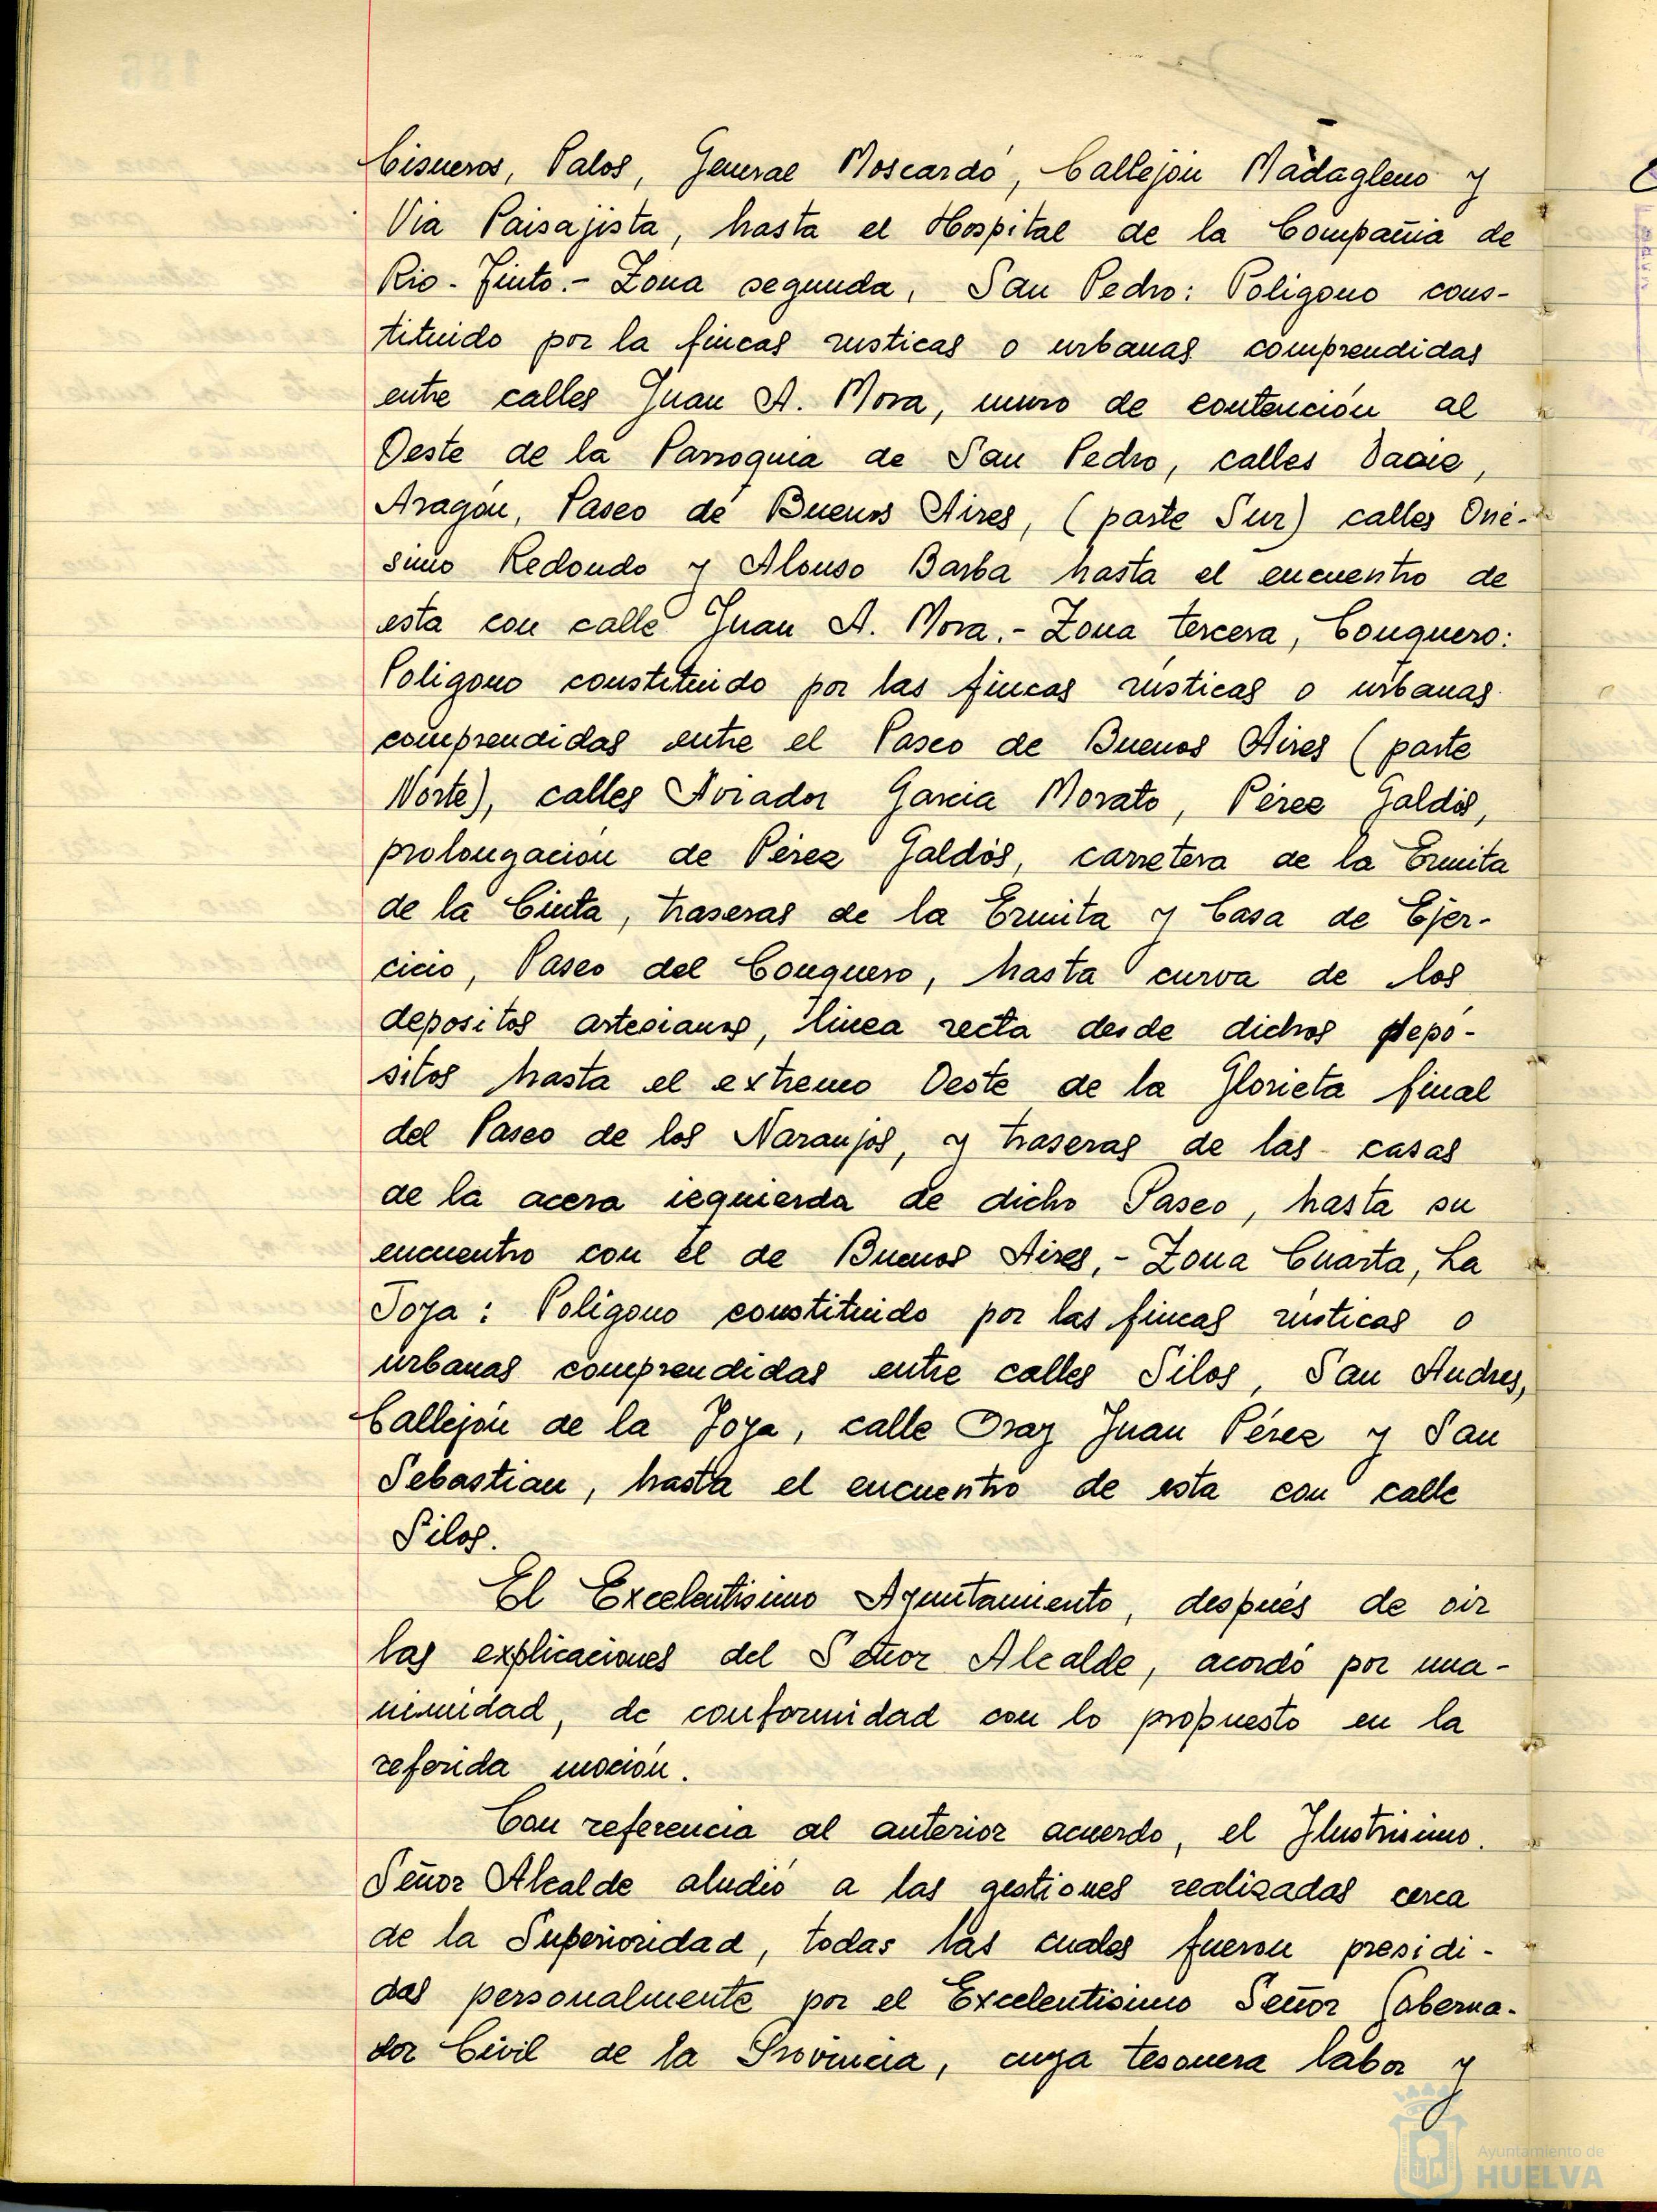 Cisneros, Palos, General Moscardó, Callejón Madagleno y
Via Paisajista, hasta el Hospital de la Compañia de
Rio-Tinto.- Zona segunda, San Pedro: Poligono cons-
tituido por la fincas rusticas o urbanas comprendidas
entre calles Juan A. Mora, muro de contención al
Oeste de la Parroquia de San Pedro, calles
Aragón, Paseo de Buenos Aires, (parte Sur) calles Oné-
simo Redondo y Alonso Barba hasta el encuentro de
esta con calle Juan A. Mora.- Zona tercera, Conquero:
Poligono constituido por las fincas rústicas o urbanas
comprendidas entre el Paseo de Buenos Aires (parte
Norte), calles Aviador Garcia Morato, Pérez Galdós,
prolongación de Pérez Galdós, carretera de la Ermita
de la Cinta, traseras de la Ermita y Casa de Ejer-
cicio, Paseo del Conquero, hasta curva de los
depositos artesianos, linea recta desde dichos depó-
sitos hasta el extremo Oeste de la Glorieta final
del Paseo de los Naranjos, y traseras de las casas
de la acera izquierda de dicho Paseo, hasta su
encuentro con el de Buenos Aires,- Zona Cuarta, La
Joya: Poligono constituido por las fincas rústicas o
urbanas comprendidas entre calles Silos, San Andres,
Callejón de la Joya, calle Fray Juan Pérez y San
Sebastian, hasta el encuentro de esta con calle
Silos.
El Excelentisimo Ayuntamiento, después de oir
las explicaciones del Señor Alcalde, acordó por una-
nimidad, de conformidad con lo propuesto en la
referida moción.
Con referencia al anterior acuerdo, el Ilustrisimo.
Señor Alcalde aludió a las gestiones realizadas cerca
de la Superioridad, todas las cuales fueron presidi-
das personalmente por el Excelentisimo Señor Goberna-
dor Civil de la Provincia, cuya tesonera labor y
Ayuntamiento de
HUELVA